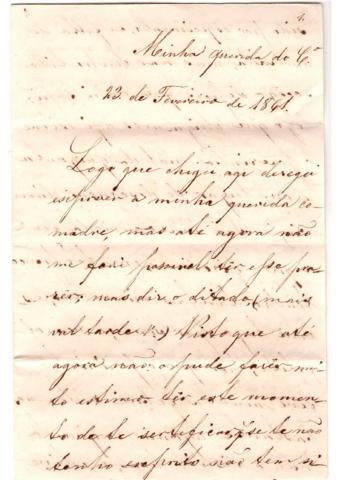 1.
Minha querida do C.º
23 de Fevereiro de 1861.
Logo que chigei aqi desegei
esprever a minha querida co-
madre, mas até agora não
me foi possivel ter esse pra-
zer, mas diz o ditado (mais
val tarde &.) Visto que até
agora não o pude fazer mui-
to estimarei ter este momen-
to de te sertificar, q se te não
tenho escrito não tem si